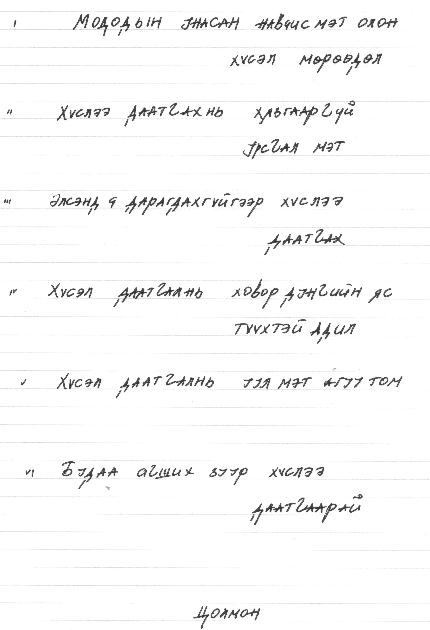 I Мододын унасан навчис мэт олон
хүсэл мөрөөдөл
II Хүслээ даатгахнь хязгааргүй
урсгал мэт
III Элсэнд ч дарагдахгүйгээр хүслээ
даатгах
IV Хүсэл даатгалнь ховор дунгийн яс
түүхтэй адил
V Хүсэл даатгалнь уул мэт агуу том
VI Будаа агших зуур хүслээ
даатгаарай
Цолмон